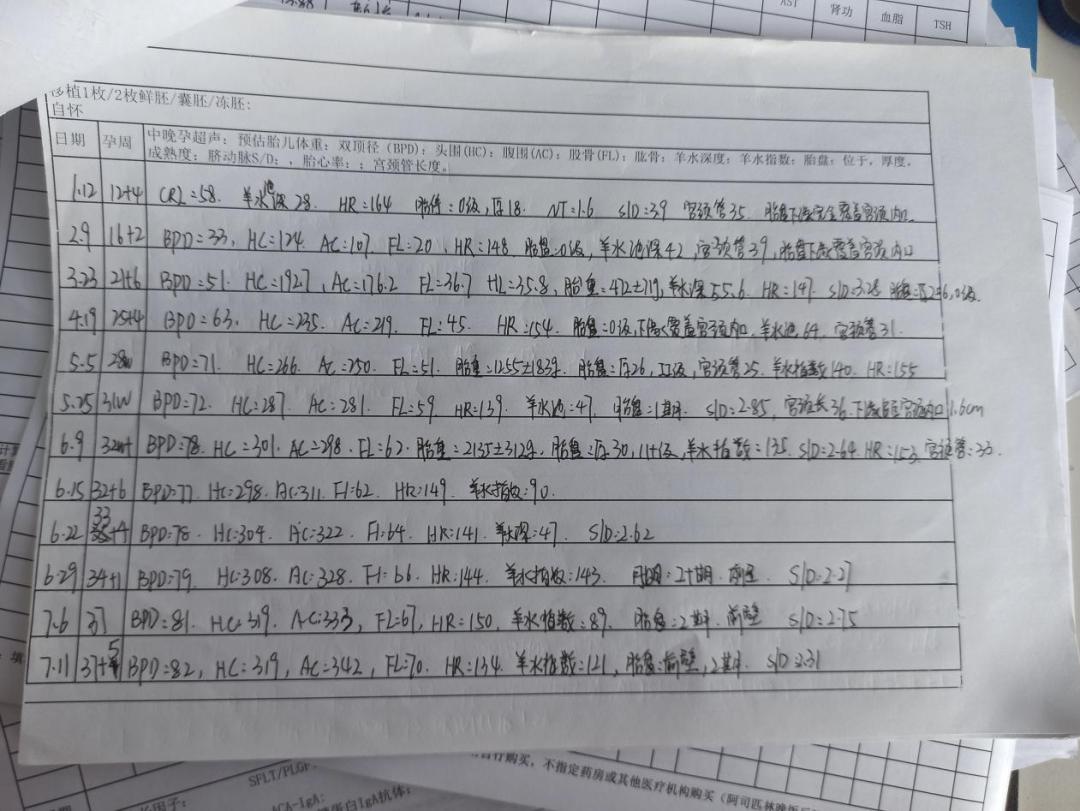 AST
肾功
血脂
TSH
移植1枚/2枚鲜胚/囊胚/冻胚:
自怀
日期 孕周 中晚孕超声：预估胎儿体重：双顶径（BPD）：头围(HC)：腹围(AC)：股骨(FL)：肱骨：羊水深度：羊水指数：胎盘：位于，厚度，
成熟度：脐动脉S/D：，胎心率：；宫颈管长度。
1.12 12+4 CRL=58. 羊水池深28. HR=164 胎盘=0级,厚18. NT=1.6 S/D=3.9 宫颈管35. 胎盘下缘完全覆盖宫颈内口
2.9 16+2 BPD=33, HC=124 AC=107 FL=20, HR=148, 胎盘=0级,羊水池深42,宫颈管39,胎盘下缘覆盖宫颈内口
3.23 21+6 BPD=51. HC=192.7, AC=176.2 FL=36.7 HL=35.8, 胎重=472±71g,羊水深55.6. HR=147. S/D=3.28 胎盘=厚24.6,0级.
4.19 25+4 BPD=63. HC=235. AC=219. FL=45. HR=154. 胎盘=0级,下缘覆盖宫颈内口.羊水池64. 宫颈管31.
5.5 28w BPD=71. HC=266. AC=250. FL=51. 胎重=1255±183g. 胎盘=厚26,II级,宫颈管25.羊水指数140. HR=155
5.25 31W BPD=72. HC=287 AC=281. FL=59. HR=139. 羊水池=47. 胎盘=1期. S/D=2.85, 宫颈长36.下缘距宫颈内口1.6cm
6.9 32w+ BPD=78. HC=301. AC=298. FL=62. 胎重=2135±312g, 胎盘=厚30,II+级,羊水指数=135. S/D=2.64. HR=153. 宫颈管=33.
6.15 32+6 BPD=77. HC=298. AC=311. Fl=62. HR=149. 羊水指数:90.
6.22 33+4 BPD=78. HC=304. AC=322. Fl=64. HR=141. 羊水深=47. S/D=2.62
6.29 34+1 BPD=79. HC=308. AC=328. Fl=66. HR=144. 羊水指数:143. 2+期. 前壁. S/D=2.27
7.6 37 BPD=81. HC=319. AC=333, FL=67, HR=150, 羊水指数=89. 胎盘=2期. 前壁 S/D=2.75
7.11 37+5 BPD=82, HC=319, AC=342, FL=70. HR=134. 羊水指数=121, 胎盘=前壁,2期. S/D=2.31
自行购买，不指定药房或其他医疗机构购买（阿司匹林
SFLT/PLGF:
ACA-IgA:
蛋白IgA抗体: